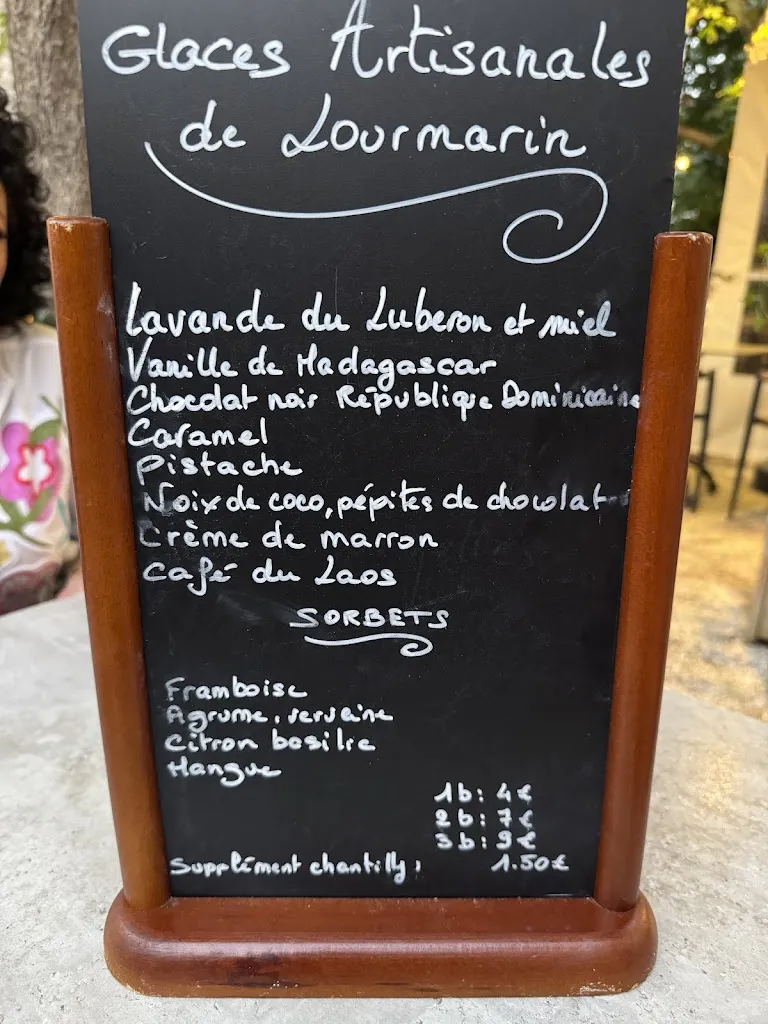 Glaces Artisanales
de Lourmarin
Lavande du Luberon et miel
Vanille de Madagascar
Chocolat noir République Dominicaine
Caramel
Pistache
Noix de coco, pépites de chocolat
Crème de marron
Café du Laos
SORBETS
Framboise
Agrume, verveine
Citron basilic
Mangue
1b: 4€
2b: 7€
3b: 9€
Supplément chantilly: 1.50€